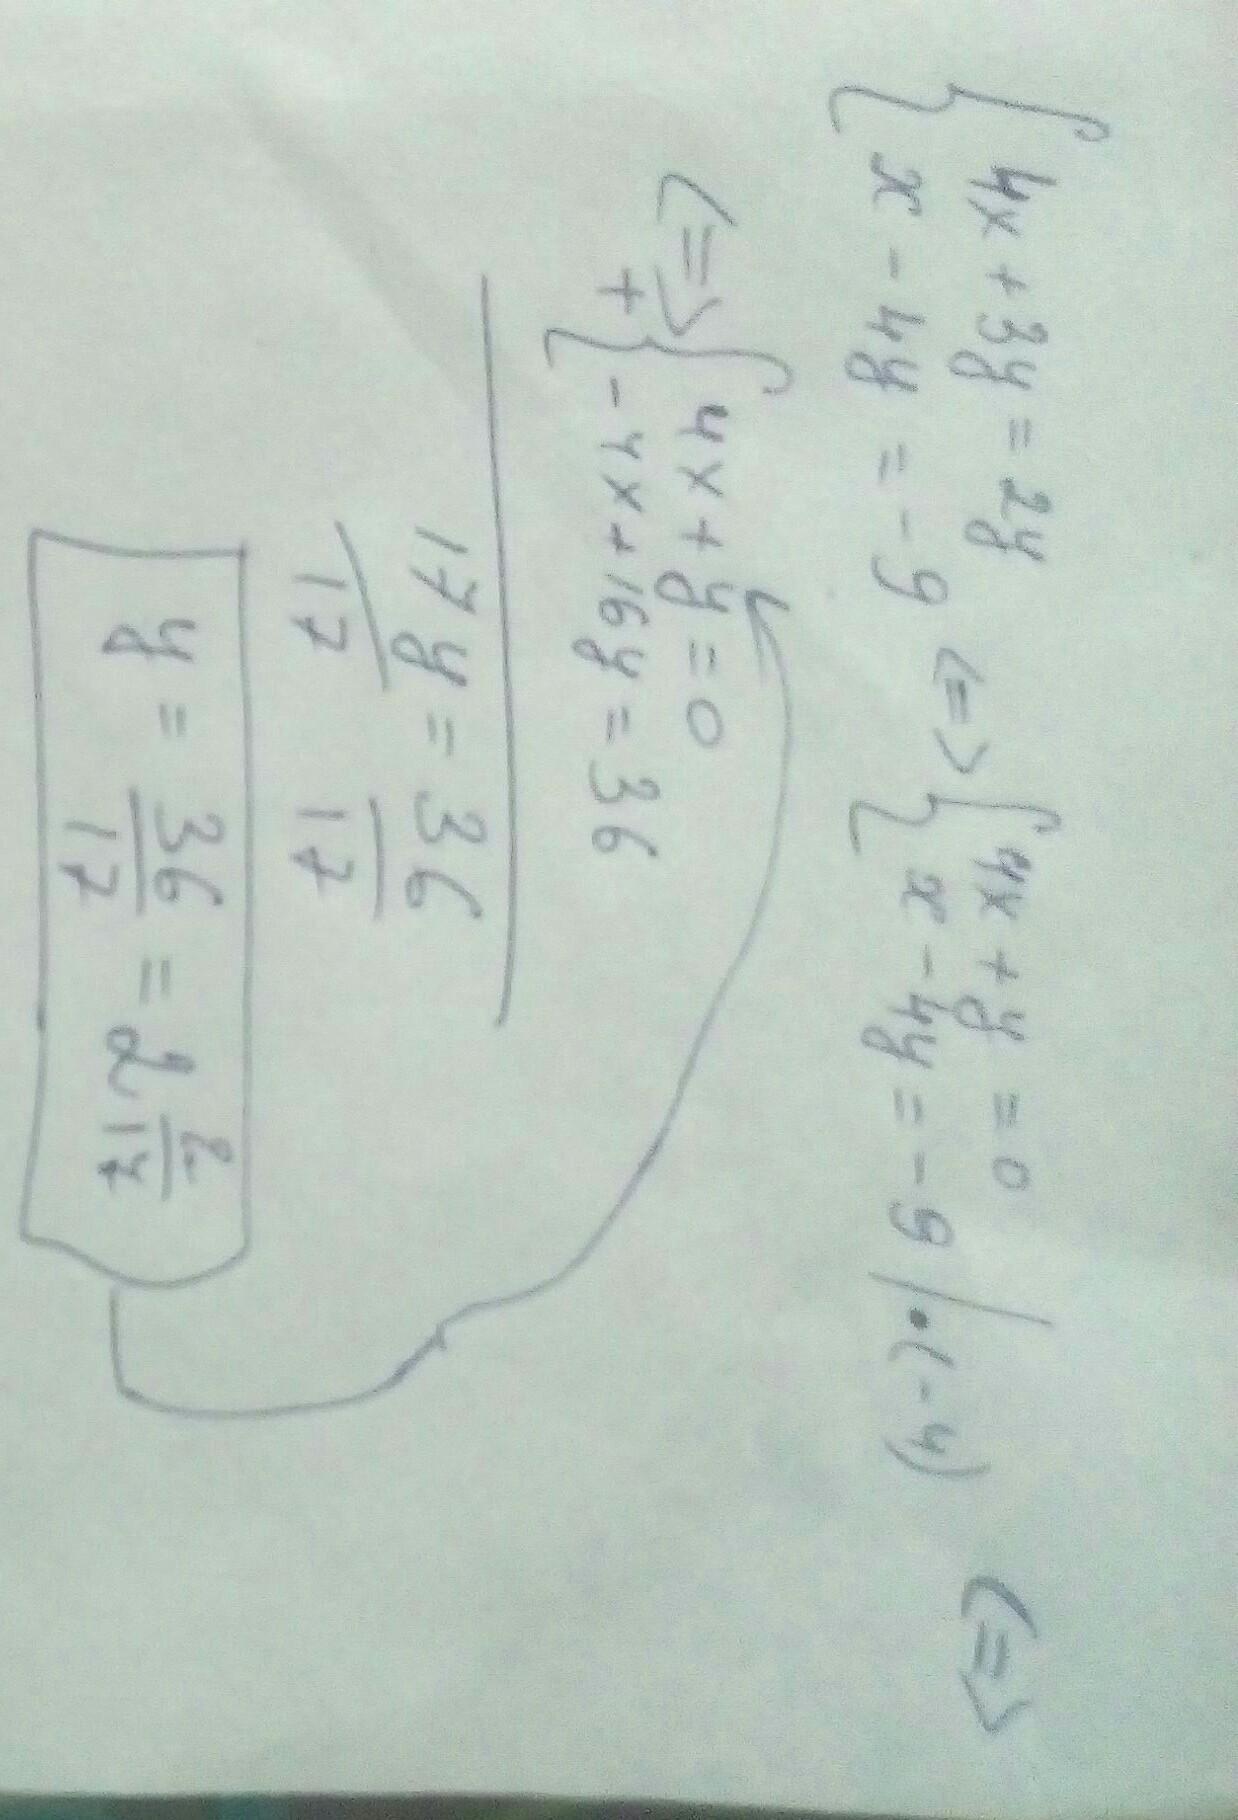 { 4x + 3y = 2y
{ x - 4y = -9 <=> { 4x + y = 0
{ x - 4y = -9 | • (-4) <=>
<=> + { 4x + y = 0
{ -4x + 16y = 36
17y = 36
17 17
y = 36/17 = 2 2/17